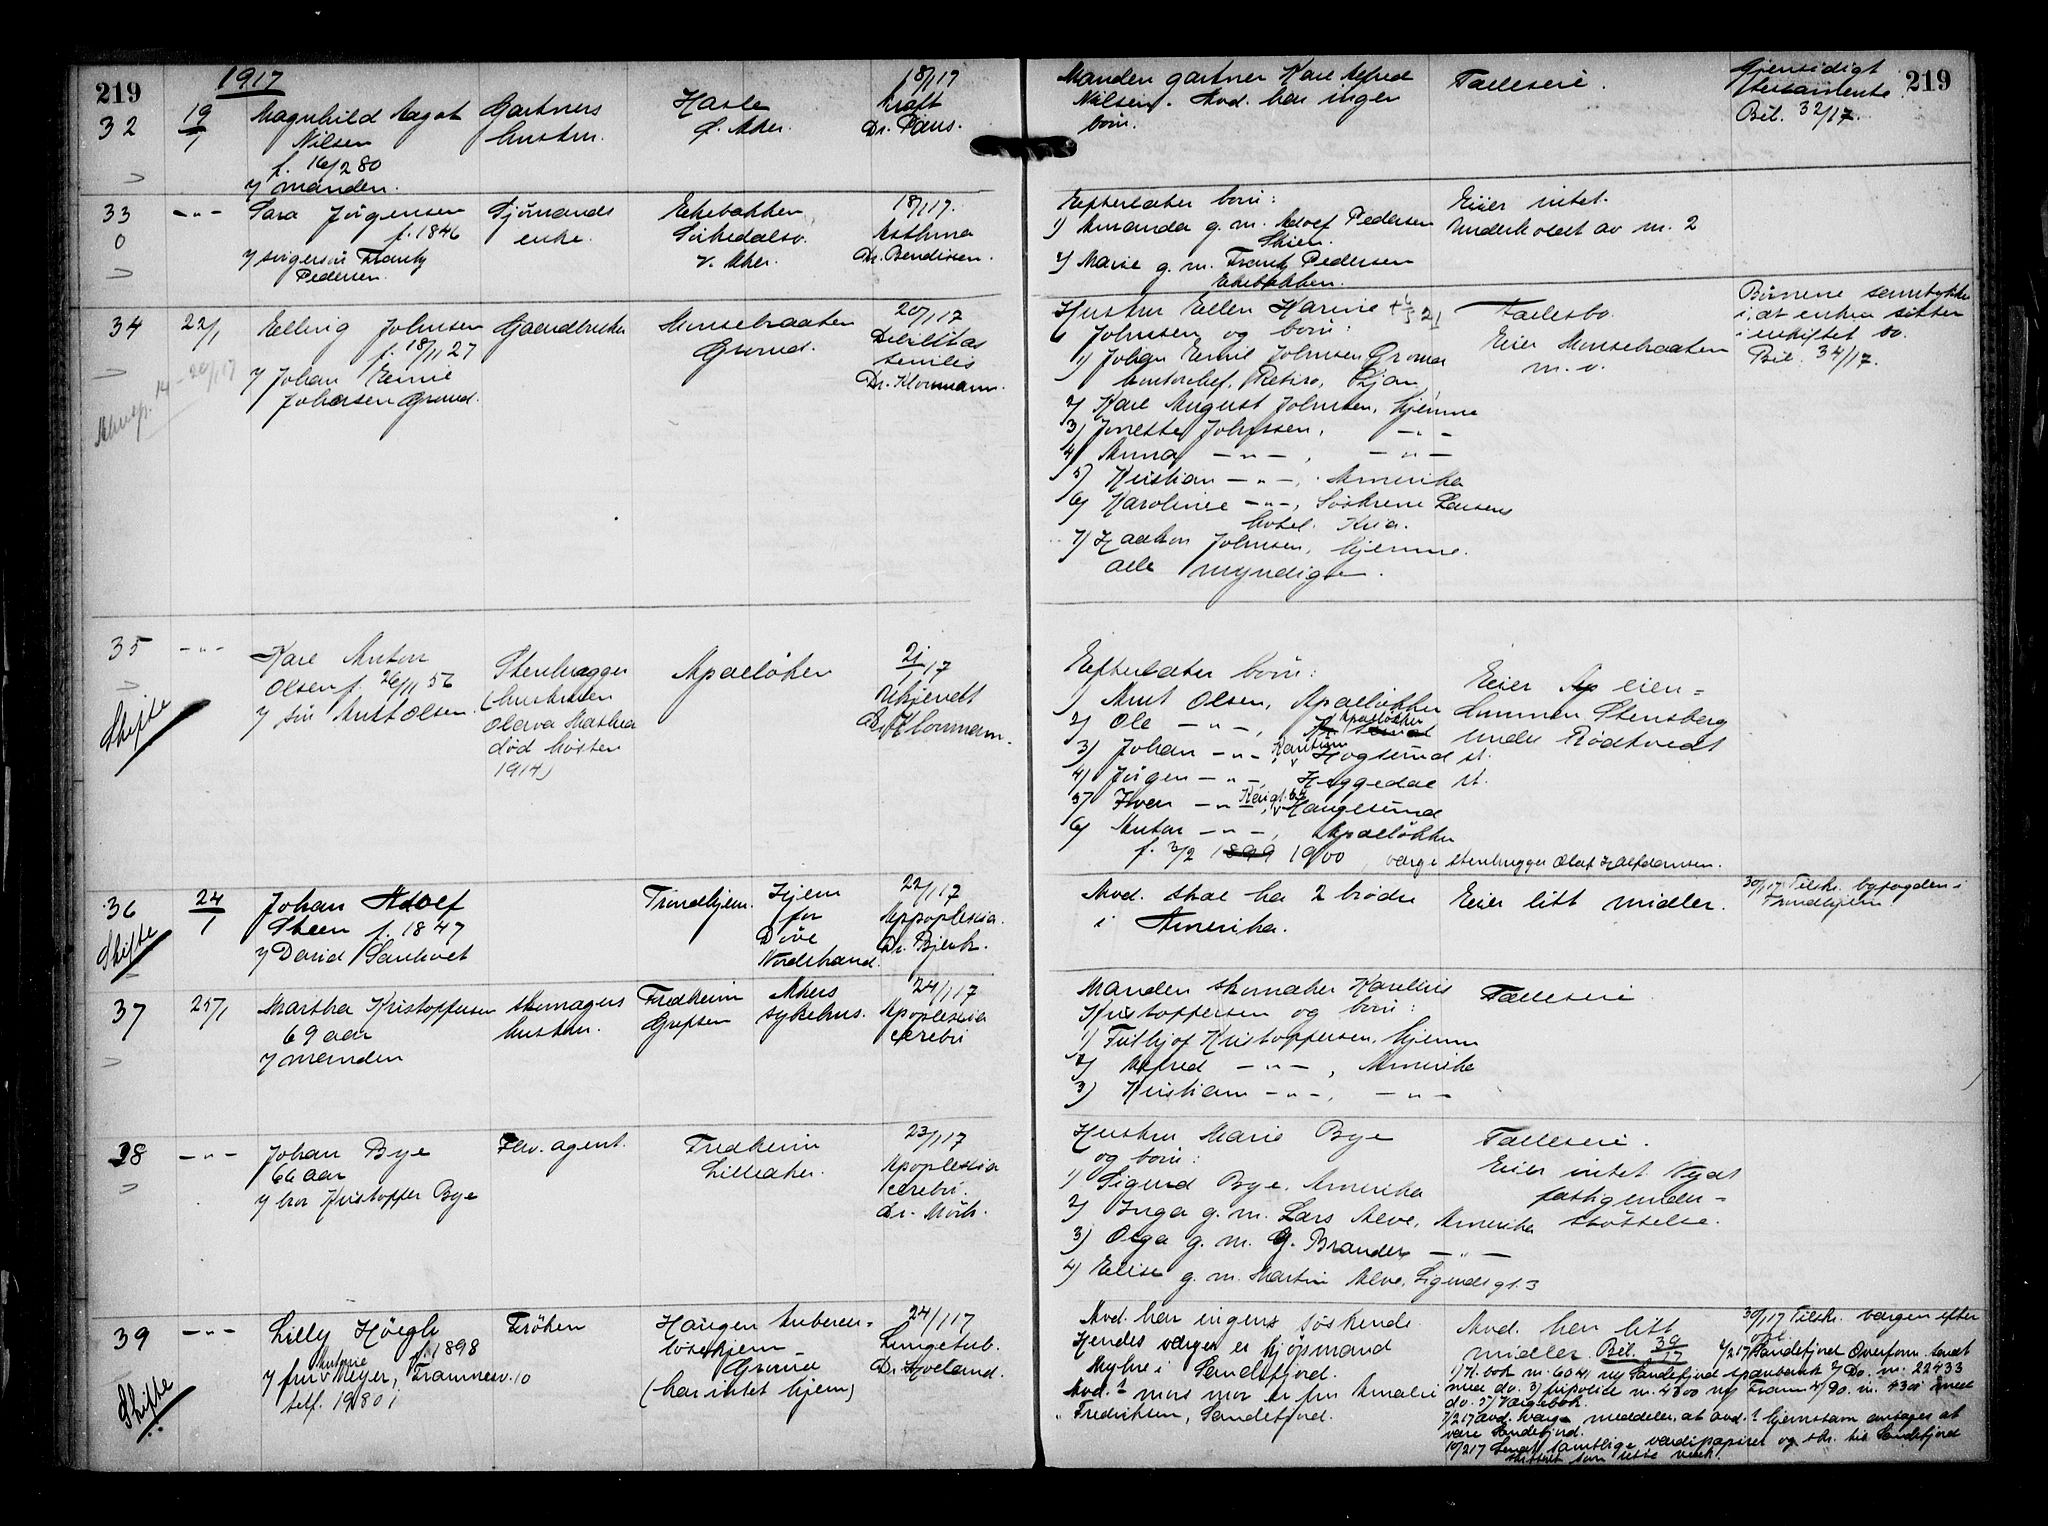 219
1917
32
19/1
Magnhild Magot
Nilsen
f. 16/2 80
v/ manden.
Gartners
hustru.
Hasle
Ø. Aker.
18/1 17
Kræft
Dr. Paus.
Manden gartner Karl Alfred
Nilsen. Avd. har ingen
born.
Fælleseie.
Gjensidigt
testamente
Bil. 32/17.
219
33
0
-"-
Sara Jörgensen
f. 1846
v/ svigersön Frantz
Pedersen.
Sjömands
enke.
Ekebakken
Sörkedalsv.
V. Aker.
18/1 17.
Asthma
Dr. Bendixen.
Efterlater born:
1) Amanda g. m. Adolf Pedersen
Skien.
2) Marie g. m. Frantz Pedersen
Ekebakken.
Eier intet.
Underholdt av nr. 2
34
22/1
Elling Johnsen
f. 18/11 27
v/ Johan Emil
Johnsen Grorud.
Gaardbruker
Monsebraaten
Grorud.
20/1 17
Debilitas
senilis
Dr. Klonmann.
Hustru Ellen Karine
Johnsen og born:
1) Johan Emil Johnsen Grorud
kontorchef, Retiro, Ljan
2) Karl August Johnsen, hjemme
3) Jonette Johnsen, -"-
4) Anna -"-, -"-
5) Kristian -"-, Amerika
6) Karoline -"-, Søstrene Larsens
hotel. Kria.
7) Haakon Johnsen, hjemme.
alle myndige.
Fællesbo.
Eier Monsebraaten
m. v.
Börnene samtykker
i, at enken sitter
i uskiftet bo.
Bil. 34/17.
35
Skifte
-"-
Karl Anton
Olsen f. 26/11 56
v/ sön Knut Olsen.
Stenhugger
(hustruen
Olava Mathea
död hösten
1914)
Apalløkken
21/1 17
Ukjendt
Dr. Klonmann.
Efterlater born:
1) Knut Olsen, Apalløkken
2) Ole -"-, Apalløkken
3) Johan -"-, Hogsund st.
4) Jörgen -"-, Heggedal st.
5) Iver -"-, Haugesund
6) Anton -"-, Apalløkken
f. 3/2 1899 1900, verge stenhugger Olaf Halfdansen.
Eier eien-
dommen Stensberg
under Rødtvedt
36
Skifte
24/1
Johan Adolf
Steen f. 1847
v/ David Sanhvet
Trondhjem.
Hjem
for
Döve
Nordstrand.
22/1 17
Appoplexia.
Dr. Bjerk.
Avd. skal ha 2 brödre
i Amerika.
Eier litt midler.
30/1 17 Tilskr. byfogden i
Trondhjem
37
25/1
Martha Kristoffersen
69 aar
v/ manden
skomagers
hustru.
Fredheim
Grefsen
Akers
sykehus.
24/1 17
Apoplexia
cerebri
Manden skomaker Karelius
Kristoffersen og born:
1) Fritjof Kristoffersen, hjemme
2) Alfred -"-, Amerika
3) Kristian -"-, -"-
Fælleseie
38
-"-
Johan Bye
66 aar
v/ bror Kristoffer Bye
Fhv. agent.
Fredheim
Lilleaker.
23/1 17
Apoplexia
cerebri.
Dr. Mörk.
Hustru Marie Bye
og born:
1) Sigurd Bye. Amerika
2) Inga g. m. Lars Alve, Amerika
3) Olga g. m. G. Brander -"-
4) Elise g. m. Martin Alve, Sigurdsgt. 3
Fælleseie.
Eier intet. Nydt
fattigunder-
støttelse.
39
Skifte
-"-
Lilly Höegh
f. 1898
v/ fru Antonie Meyer, Framnesv. 10
telf. 19801
Fröken
Haugen tuberku-
losehjem
Grorud
(har intet hjem)
24/1 17
Lungetub.
Dr. Hoveland.
Avd. har ingen söskende.
Hendes verger er kjöpmand
Myhre i Sandefjord.
Avd.s mors mor er fru Amalie
Fredriksen, Sandefjord.
Avd. har litt
midler. Bil. 39/17
30/1 17 Tilskr. vergen efter
2/2 17 Sandefjord Overform. sendt
1) Kl. bok nr. 6041 Sandefjord sparebank 2) Do. nr. 22433
7/2 17 avd. verge meddeler, at avd.s hjemstavn antages at
være Sandefjord.
10/2 17 Sendt samtlige værdipapirer og skr. til Sandefjord
skifteret som rette vedk.